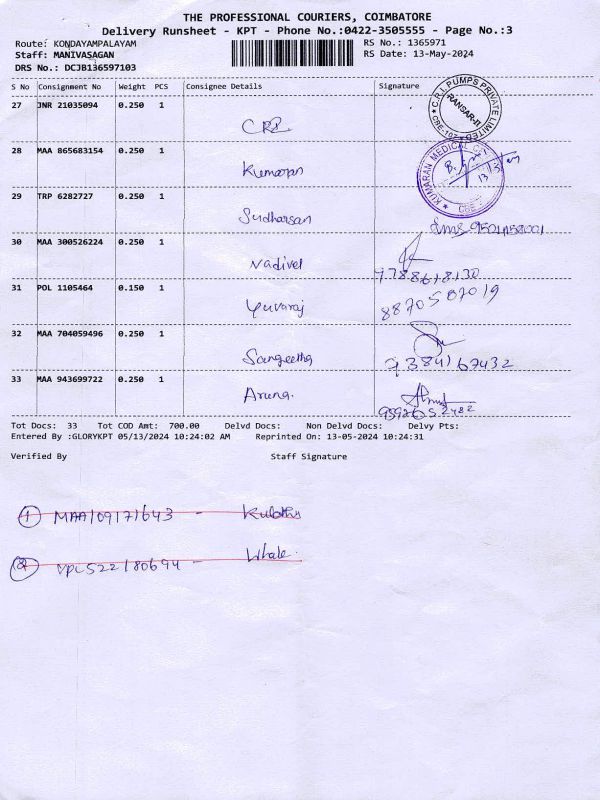 THE PROFESSIONAL COURIERS, COIMBATORE
Delivery Runsheet - KPT - Phone No.:0422-3505555 - Page No.:3
Route: KONDAYAMPALAYAM RS No.: 1365971
Staff: MANIVASAGAN RS Date: 13-May-2024
DRS No.: DCJB136597103
S No Consignment No Weight PCS Consignee Details Signature
27 JNR 21035094 0.250 1 CRI
C.R.I. PUMPS PRIVATE LIMITED
28 MAA 865683154 0.250 1 Kumaran
KUMARAN MEDICAL
29 TRP 6282727 0.250 1 Sudharsan
30 MAA 300526224 0.250 1 Vadivel
7788618130
31 POL 1105464 0.150 1 Yuvaraj 8870587019
32 MAA 704059496 0.250 1 Sangeetha 7384167432
33 MAA 943699722 0.250 1 Aruna.
Tot Docs: 33 Tot COD Amt: 700.00 Delvd Docs: Non Delvd Docs: Delvy Pts:
Entered By :GLORYKPT 05/13/2024 10:24:02 AM Reprinted On: 13-05-2024 10:24:31
Verified By Staff Signature
1 MAA109171643 -
2 VPL522180694 - Whale.